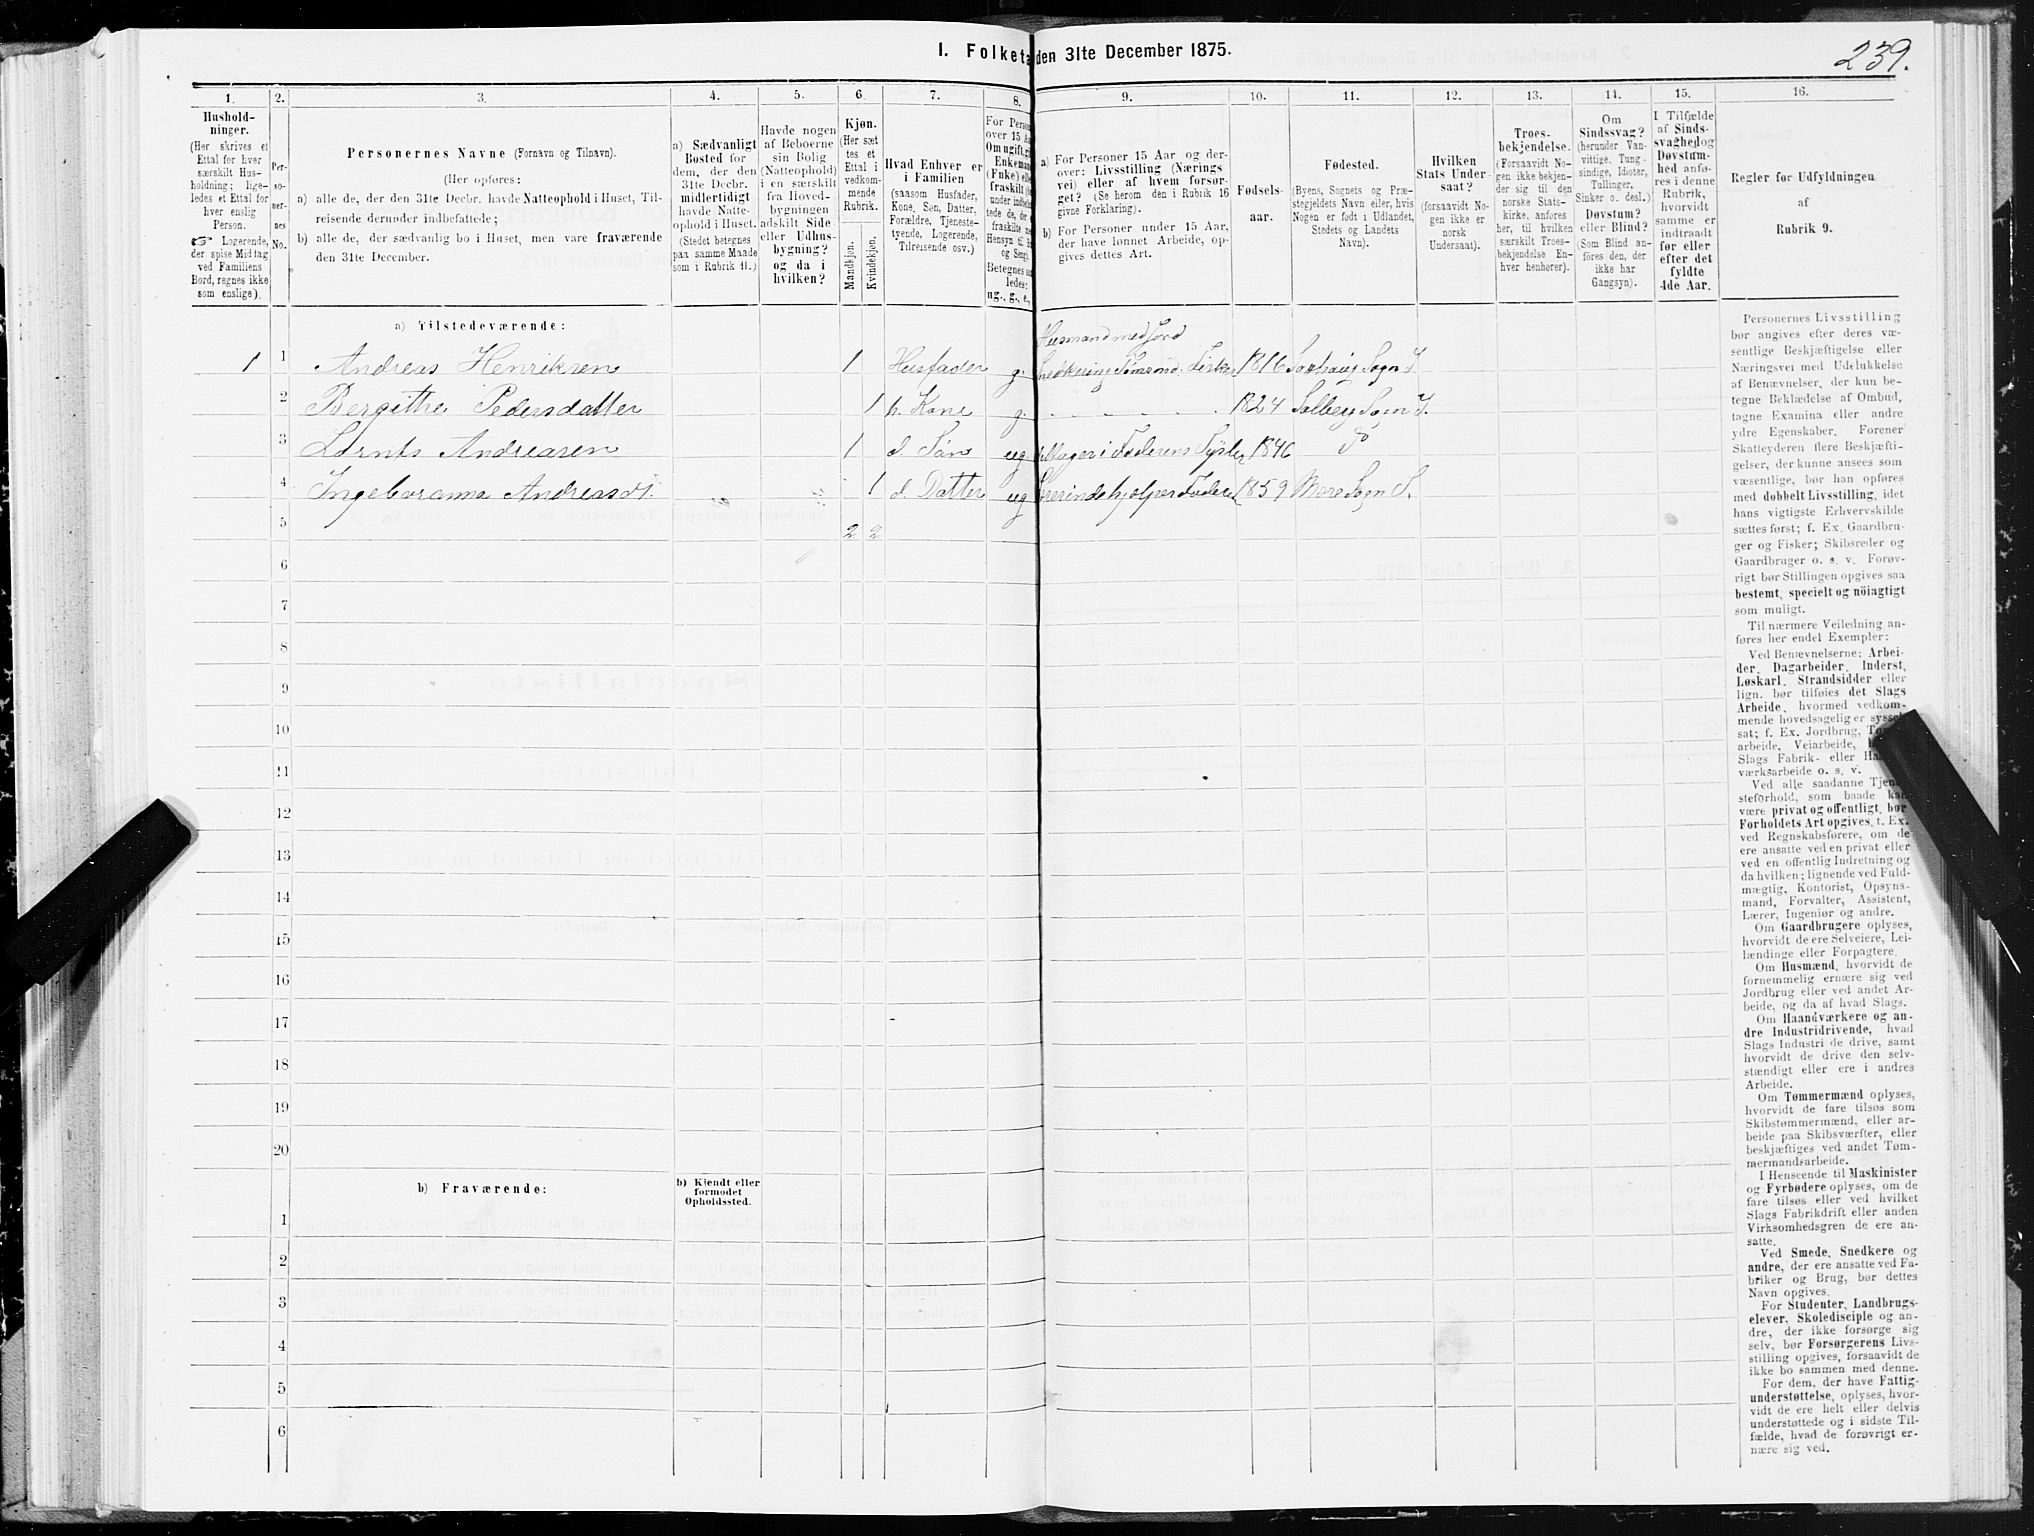 239.
I. Folketa den 31te December 1875.
1. 2. 3. 4. 5. 6. 7. 8. 9. 10. 11. 12. 13. 14. 15. 16.
Hushold-
ninger.
(Her skrives et
Ettal for hver
særskilt Hus-
holdning; lige-
ledes et Ettal for
hver enslig
Person.
☞ Logerende,
der spise Middag
ved Familiens
Bord, regnes ikke
som enslige).
Per-
so-
ner-
nes
No.
Personernes Navne (Fornavn og Tilnavn).
(Her opføres:
a) alle de, der den 31te Decbr. havde Natteophold i Huset, Til-
reisende derunder indbefattede;
b) alle de, der sædvanlig bo i Huset, men vare fraværende
den 31te December.
a) Sædvanligt
Bosted for
dem, der den
31te Decbr.
midlertidigt
havde Natte-
ophold i Huset.
(Stedet betegnes
paa samme Maade
som i Rubrik 11.)
Havde nogen
af Beboerne
sin Bolig
(Natteophold)
i en særskilt
fra Hoved-
bygningen
adskilt Side-
eller Udhus-
bygning?
og da i
hvilken?
Kjøn.
(Her sæt
tes et
Ettal i
vedkom-
mende
Rubrik.
Mandkjøn.
Kvindekjøn.
Hvad Enhver er
i Familien
(saasom Husfader,
Kone, Søn, Datter,
Forældre, Tjeneste-
tyende, Logerende,
Tilreisende osv.)
For Person
over 15 Aa
Om ugift, gi
Enkeman
(Fuke) elle
fraskilt (
under indbef
tede de, de
fraskilte m
Hensyn til B
og Seng).
Betegnes sa
ledes:
ug., g., e.,
a) For Personer 15 Aar og der-
over: Livsstilling (Nærings
vei) eller af hvem forsør-
get? (Se herom den i Rubrik 16
givne Forklaring).
b) For Personer under 15 Aar,
der have lønnet Arbeide, op-
gives dettes Art.
Fødsels-
aar.
Fødested.
(Byens, Sognets og Præ-
stegjeldets Navn eller, hvis
Nogen er født i Udlandet,
Stedets og Landets
Navn).
Hvilken
Stats Under-
saat?
(forsaavidt No-
gen ikke er
norsk
Undersaat).
Troes-
bekjendelse.
(Forsaavidt No-
gen ikke bekjen-
der sig til den
norske Stats-
kirke, anføres
her, til hvilken
særskilt Troes-
bekjendelse En-
hver henhører).
Om
Sindssvag?
(herunder Van-
vittige, Tung-
sindige, Idioter,
Tullinger,
Sinker o. desl.)
Døvstum?
eller Blind?
(Som Blind an-
føres den, der
ikke har
Gangsyn).
I Tilfælde
af Sinds-
svaghed og
Døvstum-
hed anfø-
res i denne
Rubrik,
hvorvidt
samme er
indtraadt
før eller
efter det
fyldte
4de Aar.
Regler for Udfyldningen
af
Rubrik 9.
a) Tilstedeværende:
Husmand med Jord
1 1 Andreas Henriksen 1 Husfader g. 1816 Sogn
2 Bergithe Pedersdatter 1 h. Kone g. 1824 Solberg Sogn
3 Lornts Andreasen 1 d. Søn ug i Faderens Sysler 1846 do
4 Ingeboranna Andreasd. 1 d. Datter ug hjælper 1859 Sogn
5 2 2
6
7
8
9
10
11
12
13
14
15
16
17
18
19
20
b) Fraværende:
b) Kjendt eller
formodet
Opholdssted.
1
2
3
4
5
6
Personernes Livsstilling
bør angives efter deres væ-
sentlige Beskjæftigelse eller
Næringsvei med Udelukkelse
af Benævnelser, der kun be-
tegne Beklædelse af Ombud,
tagne Examina eller andre
ydre Egenskaber. Forener
Skatteyderen flere Beskjæfti-
gelser, der kunne ansees som
væsentlige, bør han opføres
med dobbelt Livsstilling, idet
hans vigtigste Erhvervskilde
sættes først; f. Ex. Gaardbru-
ger og Fisker; Skibsreder og
Gaardbruger o. s. v. Forøv-
rigt bør Stillingen opgives saa
bestemt, specielt og nöiagtigt
som muligt.
Til nærmere Veiledning an-
føres her endel Exempler:
Ved Benævnelserne: Arbei-
der, Dagarbeider, Inderst,
Løskarl, Strandsidder eller
lign. bør tilføies det Slags
Arbeide, hvormed vedkom-
mende hovedsagelig er syssel-
sat; f. Ex. Jordbrug, To
arbeide, Veiarbeide,
Slags Fabrik- eller Ha
værksarbeide o. s. v.
Ved alle saadanne Tjene
steforhold, som baade kan
være privat og offentligt, bør
Forholdets Art opgives, t. Ex.
ved Regnskabsførere, om de
ere ansatte ved en privat eller
ved en offentlig Indretning og
da hvilken; lignende ved Fuld-
mægtig, Kontorist, Opsyns-
mand, Forvalter, Assistent,
Lærer, Ingeniør og andre.
Om Gaardbrugere oplyses,
hvorvidt de ere Selveiere, Lei-
lændinge eller Forpagtere.
Om Husmænd, hvorvidt de
fornemmelig ernære sig ved
Jordbrug eller ved andet Ar-
beide, og da af hvad Slags.
Om Haandværkere og an-
dre Industridrivende, hvad
Slags Industri de drive, samt
hvorvidt de drive den selv-
stændigt eller ere i andres
Arbeide.
Om Tømmermænd oplyses,
hvorvidt de fare tilsøs som
Skibstømmermænd, eller ar-
beide paa Skibsværfter, eller
beskjæftiges ved andet Tøm-
mermandsarbeide.
I Henseende til Maskinister
og Fyrbødere oplyses, om de
fare tilsøs eller ved hvilket
Slags Fabrikdrift eller anden
Virksomhedsgren de ere an-
satte.
Ved Smede, Snedkere og
andre, der ere ansatte ved Fa-
briker og Brug, bør dettes
Navn opgives.
For Studenter, Landbrugs-
elever, Skoledisciple og an-
dre, der ikke forsørge sig
selv, bør Forsørgerens Livs-
stilling opgives, forsaavidt de
ikke bo sammen med denne.
For dem, der have Fattig-
understøttelse, oplyses, hvor-
vidt de ere helt eller delvis
understøttede og i sidste Til-
fælde, hvad de forøvrigt er-
nære sig ved.